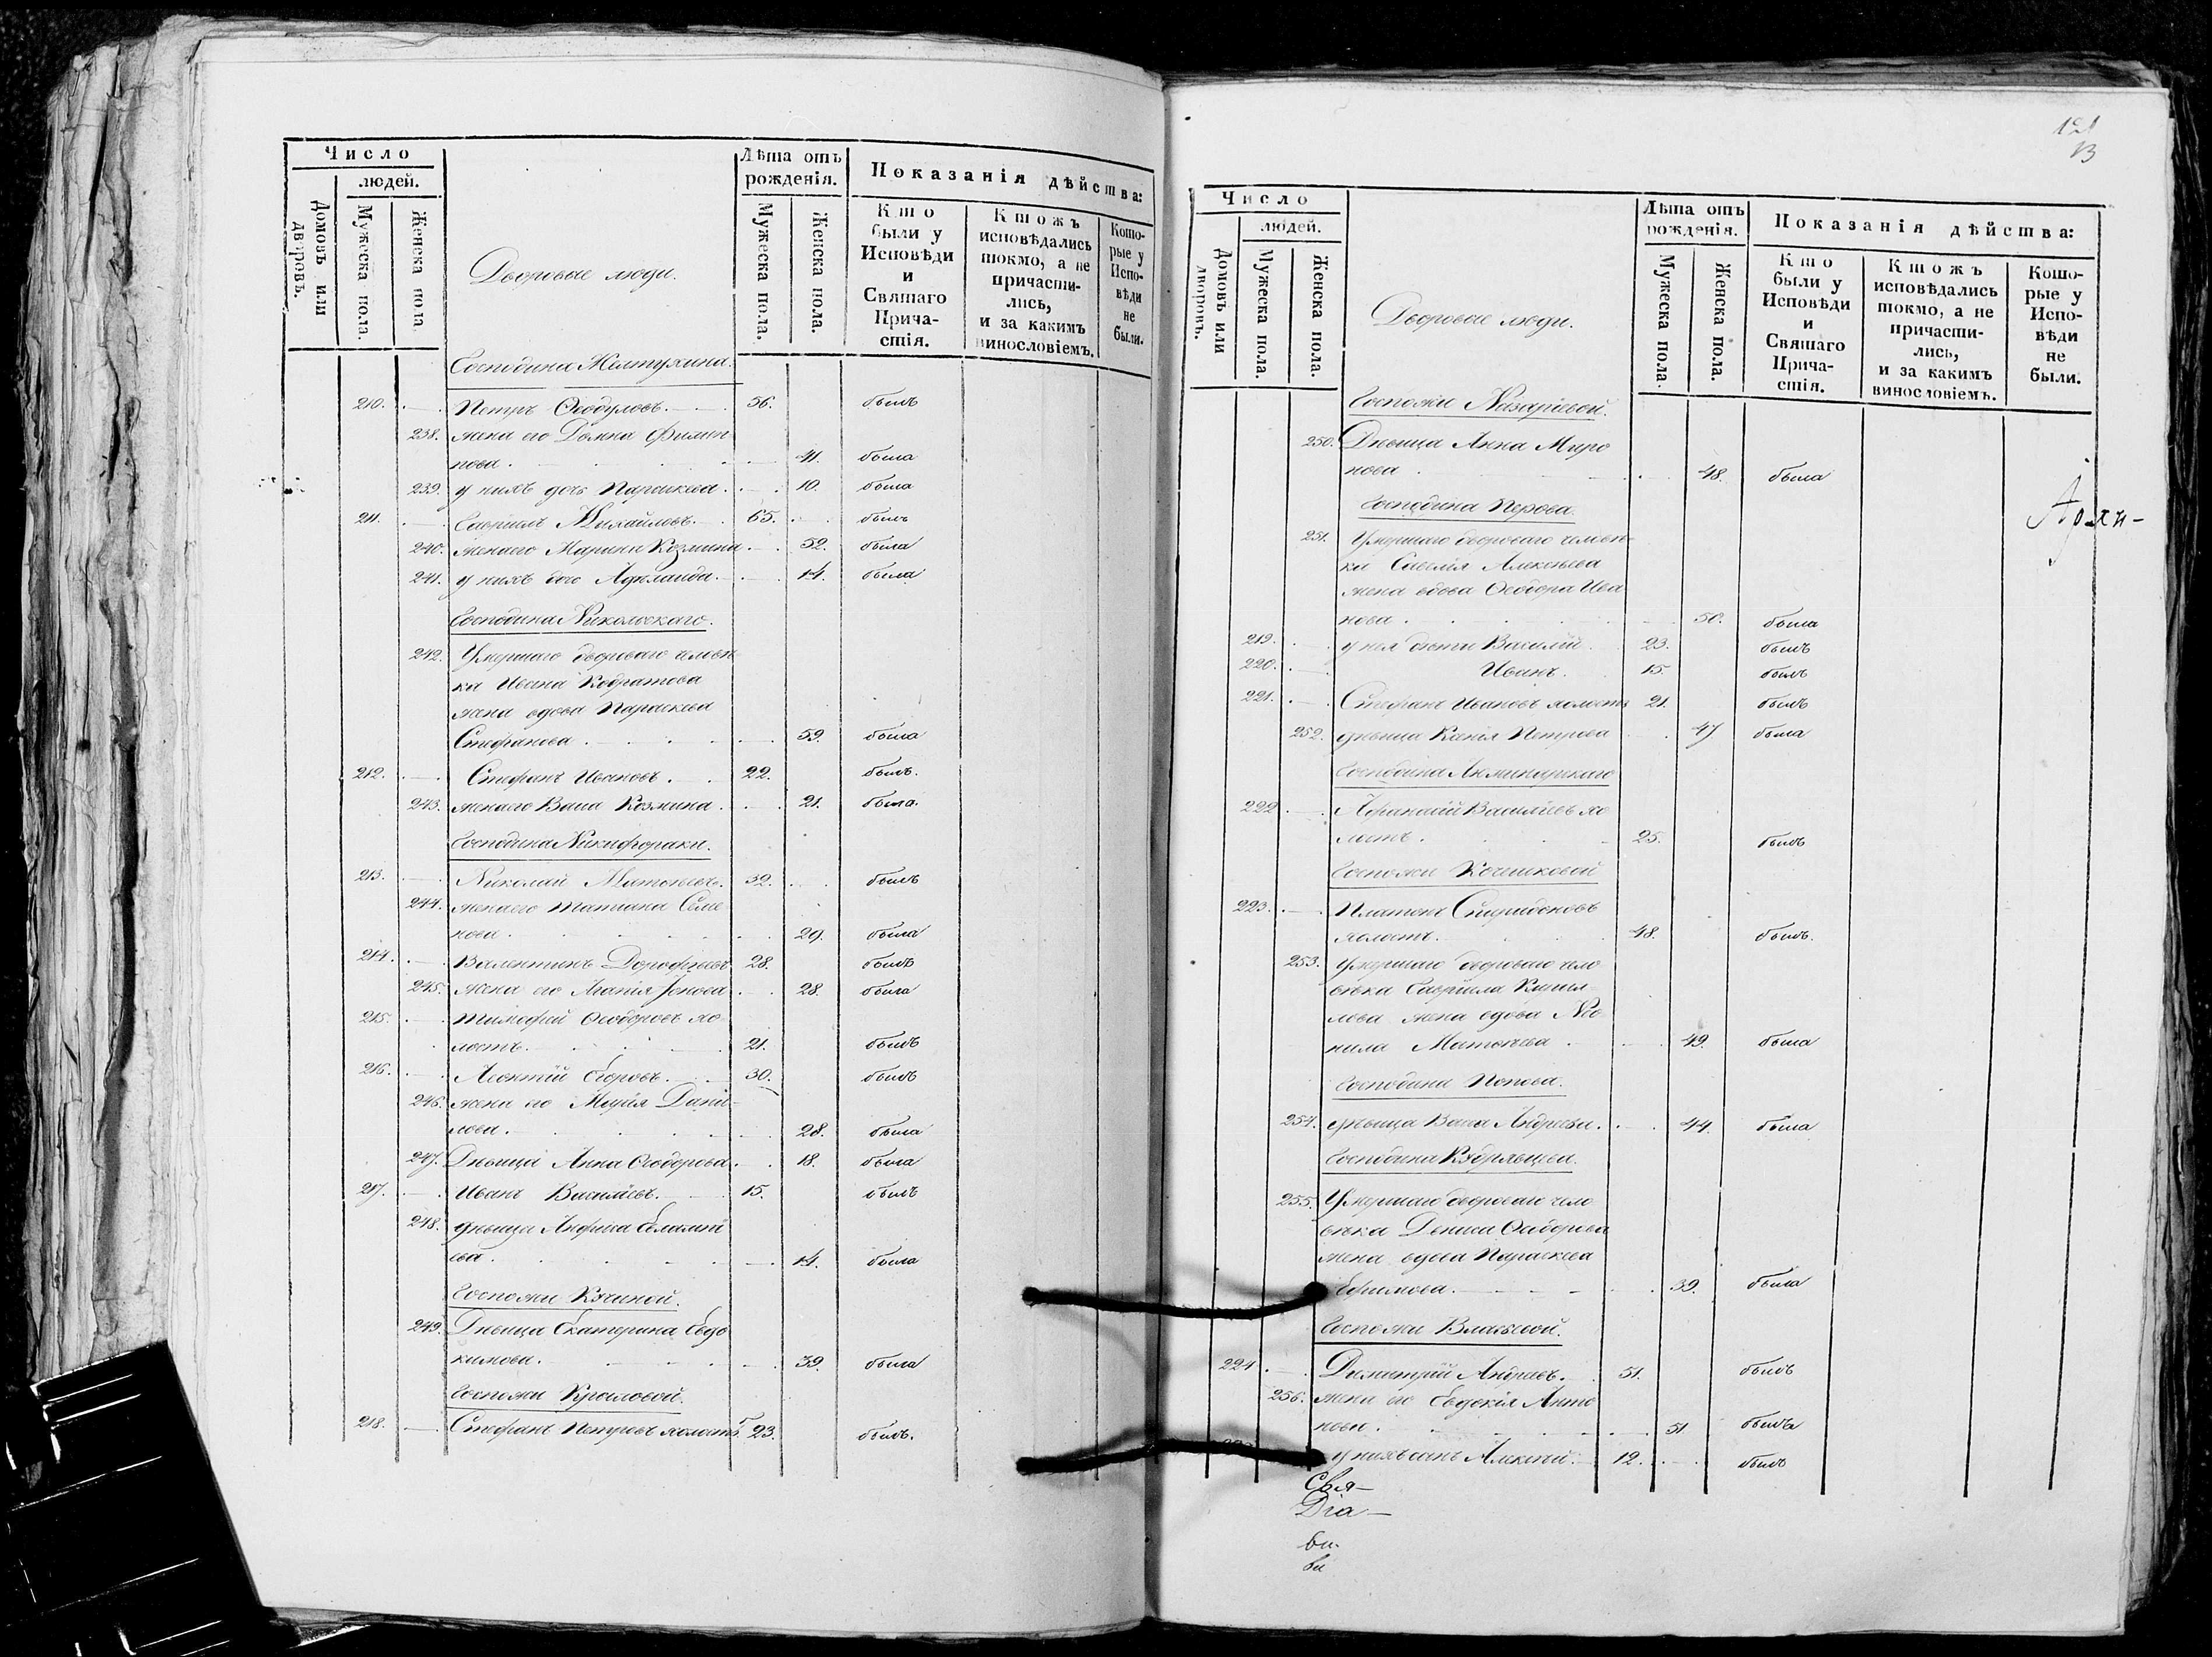 Число
людей.
Домовъ или дворовъ.
Мужеска пола.
Женска пола
Дворовые люди.
Лѣта отъ рожденія.
Мужеска пола.
Женска пола.
Показанія дѣйства:
Кто были у Исповѣди и Святаго Причастія.
Ктожъ исповѣдались токмо, а не причастились, и за какимъ винословіемъ.
Которые у Исповѣди не были.
Господина Желтухина.
210. Петръ Ѳеодуловъ. 56. былъ
238. жена его Домна Филип
пова. 41. была
239. у нихъ дочь Параскева. 10. была
211. Гавріилъ Михайловъ. 65. былъ
240. жена его Марина Козмина. 52. была
241. у нихъ дочь Аделаида. 14. была
Господина Никольскаго.
242. Умершаго двороваго человѣ
ка Ивана Кодратова
жена вдова Параскева
Стефанова. 59. была
212. Стефанъ Ивановъ. 22. былъ.
243. жена его Васса Козмина. 21. была.
Господина Никифораки.
213. Николай Матвѣевъ. 32. былъ
244. жена его Татіана Семе
нова. 29. была
214. Валентинъ Дорофѣевъ 28. былъ
245. жена его Агапія Іонова 28. была
215. Тимофей Ѳеодоровъ хо
лостъ. 21. былъ
216. Леонтій Егоровъ. 30. былъ
246. жена его Марія Дани-
лова. 28. была
247. Дѣвица Анна Ѳеодорова. 18. была
217. Иванъ Василіевъ. 15. былъ
248. дѣвица Анфиса Евлампі
ева. 14. была
Госпожи Кячиной.
249. Дѣвица Екатерина Евдо
кимова. 39. была
Госпожи Крыловой.
218. Стефанъ Петровъ холостъ 23. былъ.
121
13
Число
людей.
Домовъ или дворовъ.
Мужеска пола.
Женска пола.
Дворовые люди.
Лѣта отъ рожденія.
Мужеска пола.
Женска пола.
Показанія дѣйства:
Кто были у Исповѣди и Святаго Причастія.
Ктожъ исповѣдались токмо, а не причастились, и за какимъ винословіемъ.
Которые у Исповѣди не были.
Госпожи Назаріевой.
250. Дѣвица Анна Миро
нова. 48. была
Господина Перова.
251. Умершаго двороваго человѣ
ка Савелія Алексѣева
жена вдова Ѳеодора Ива
нова. 50. была
219. у нея дѣти Василій 23. былъ
220. Иванъ. 15. былъ
221. Стефанъ Ивановъ холостъ 21. былъ
252. дѣвица Ксенія Петрова 47 была
222. Афанасій Василіевъ хо
лостъ. 25. былъ
Госпожи Кочешковой
223. Платонъ Спиридоновъ
холостъ. 48. былъ.
253. умершаго двороваго чело
вѣка Гавріила Кирил-
лова жена вдова Нео
нила Матвѣева. 49. была
Господина Попова.
254. дѣвица Васса Андреева. 44. была
Господина Кудрявцева.
255. Умершаго двороваго чело
вѣка Дениса Ѳеодорова
жена вдова Параскева
Ефимова. 39. была
Госпожи Власьевой.
224. Димитрій Андреевъ. 51. былъ
256. жена его Евдокія Анто
нова. 51 была
у нихъ сынъ Алексѣй. 12. былъ
Архи-
Свя-
Діа-